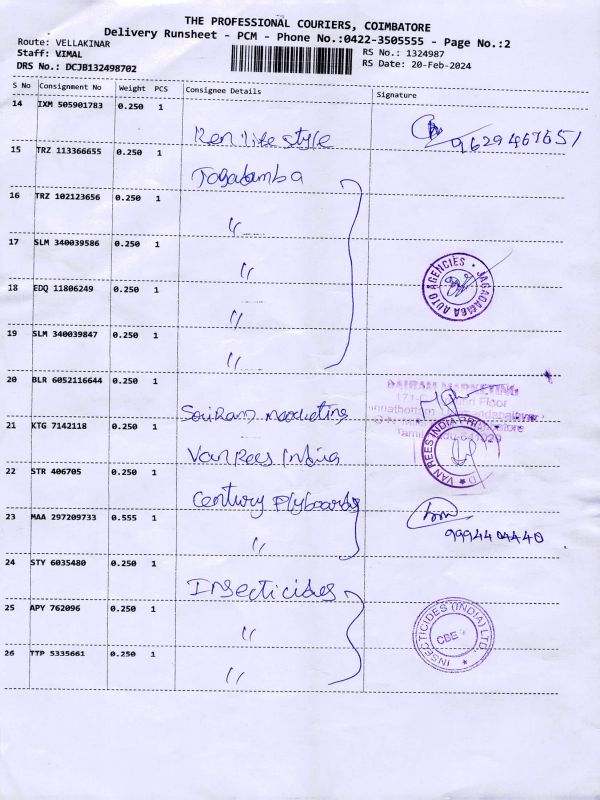 THE PROFESSIONAL COURIERS, COIMBATORE
Delivery Runsheet - PCM - Phone No.:0422-3505555 - Page No.:2
Route: VELLAKINAR
Staff: VIMAL
DRS No.: DCJB132498702
RS No.: 1324987
RS Date: 20-Feb-2024
S No Consignment No Weight PCS Consignee Details Signature
14 IXM 505901783 0.250 1
Ren life style 9629467651
15 TRZ 113366655 0.250 1
Jagadamba
16 TRZ 102123656 0.250 1
"
17 SLM 340039586 0.250 1
"
18 EDQ 11806249 0.250 1
"
JAGADAMBA AUTO AGENCIES
19 SLM 340039847 0.250 1
"
20 BLR 6052116644 0.250 1
SaiRam marketing
SAIRAM MARKETING
Floor
21 KTG 7142118 0.250 1
VanRees India
VAN REES INDIA PRI
22 STR 406705 0.250 1
Century Plyboards
23 MAA 297209733 0.555 1
"
9994404440
24 STY 6035480 0.250 1
Insecticides
25 APY 762096 0.250 1
"
INSECTICIDES (INDIA) LTD.
CBE
26 TTP 5335661 0.250 1
"